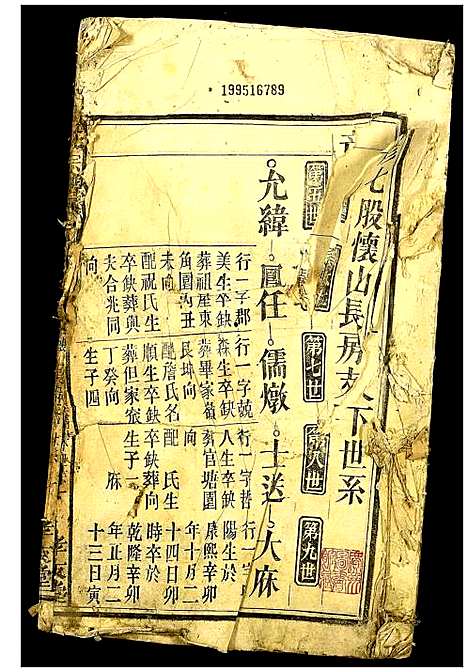 199516789
七股懷山長房支下世系
第五世
第七世
第八世
第九世
允緯
鳳任
儒燉
士送
大麻
行一字郡
美生卒缺
葬祖屋東
角園內丑
未向
配祝氏生
卒缺葬與
夫合兆同
向
行一字競
森生卒缺
葬畢家嶺
艮坤向
配詹氏名
順生卒缺
葬但家
丁癸向
生子四
行一字哲
人生卒缺
葬官塘園
配 氏生
卒缺葬向
生子一
麻
行一
陽生於
康熙辛卯
年十月二
十四日卯
時卒於
乾隆辛卯
年正月二
十三日寅